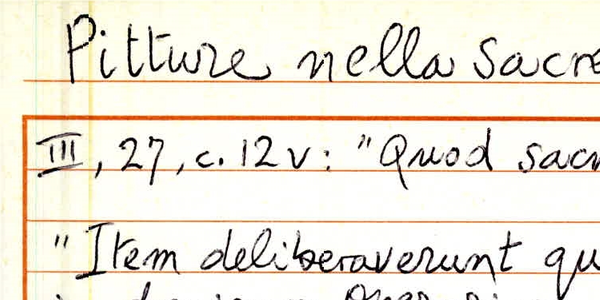 Pitture nella sacre
III, 27, c. 12 v: "Quod sac
"Item deliberaverunt qu